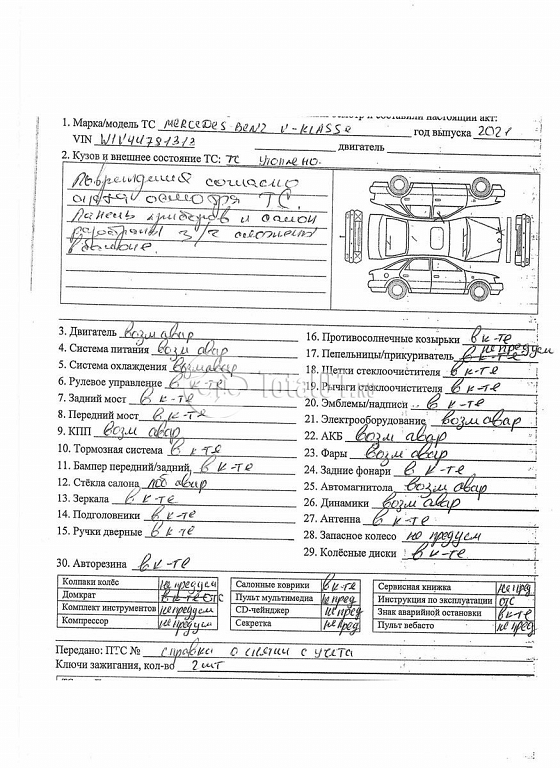 настоящий акт:
1. Марка/модель ТС MERCEDES BENZ V-KLASSE год выпуска 2021
VIN W1V44781313 двигатель
2. Кузов и внешнее состояние ТС: ТС утоплено.
Повреждения согласно
акта осмотра ТС.
Панель приборов и салон
разобраны з/ч сложены
в салоне.
3. Двигатель возм авар
4. Система питания возм авар
5. Система охлаждения возм авар
6. Рулевое управление в к-те
7. Задний мост в к-те
8. Передний мост в к-те
9. КПП возм авар
10. Тормозная система в к-те
11. Бампер передний/задний, в к-те
12. Стёкла салона лоб авар
13. Зеркала в к-те
14. Подголовники в к-те
15. Ручки дверные в к-те
16. Противосолнечные козырьки в к-те
17. Пепельницы/прикуриватель не предусм
18. Щетки стеклоочистителя в к-те
19. Рычаги стеклоочистителя в к-те
20. Эмблемы/надписи в к-те
21. Электрооборудование возм авар
22. АКБ возм авар
23. Фары возм авар
24. Задние фонари в к-те
25. Автомагнитола возм авар
26. Динамики возм авар
27. Антенна в к-те
28. Запасное колесо не предусм
29. Колёсные диски в к-те
30. Авторезина в к-те
Колпаки колёс не предусм Салонные коврики в к-те Сервисная книжка не пред
Домкрат в к-те отс Пульт мультимедиа не пред Инструкция по эксплуатации отс
Комплект инструментов не предусм CD-чейнджер не пред Знак аварийной остановки в к-те
Компрессор не предусм Секретка не пред Пульт вебасто не пред
Передано: ПТС № справка о снятии с учета
Ключи зажигания, кол-во 2 шт